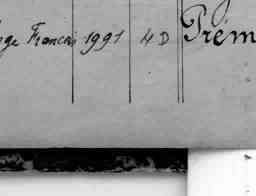 ge Francois 1991 4D Prém